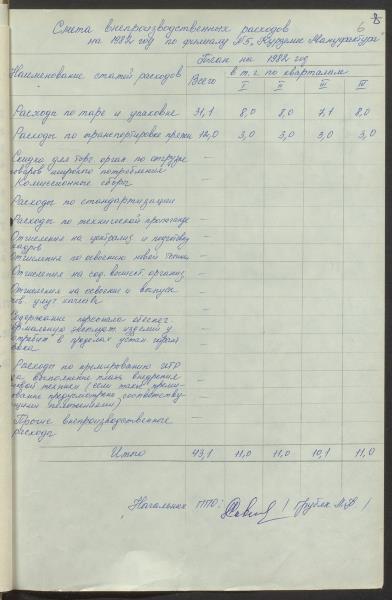 6
Смета внепроизводственных расходов
на 1982 год по филиалу №5 „Кудулис Мануфактура"
Наименование статей расходов Всего План на 1982 год
в т.ч. по кварталам
I II III IV
Расходы по таре и упаковке 31,1 8,0 8,0 7,1 8,0
Расходы по транспортировке пряжи 12,0 3,0 3,0 3,0 3,0
Скидка для торг. орган. по отгрузке —
товаров широкого потребления
Комиссионные сборы —
Расходы по стандартизации
Расходы по технической пропаганде —
Отчисления на централиз. и подготовку —
кадров
Отчисления по освоению новой техники —
Отчисления на сод. вышест. организ. —
Отчисления на освоение и выпуск —
тов. улуч. качества
Содержание персонала обеспеч.
нормальную эксплуат. изделий у —
потребит. в пределах устан. гарант.
срока
Расходы по премированию ИТР
за выполнение плана внедрения —
новой техники (если такое преми-
рование предусмотрено соответству-
ющими положениями)
Прочие внепроизводственные —
расходы
Итого 43,1 11,0 11,0 10,1 11,0
Начальник ППО: / М.Ф. /